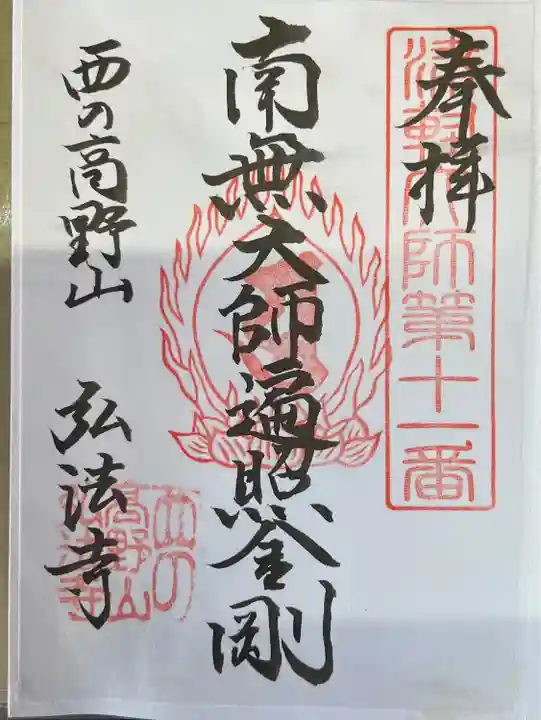 奉拝
大師第十一番
南無大師遍照金剛
西の高野山 弘法寺
西の
高野山
弘法寺